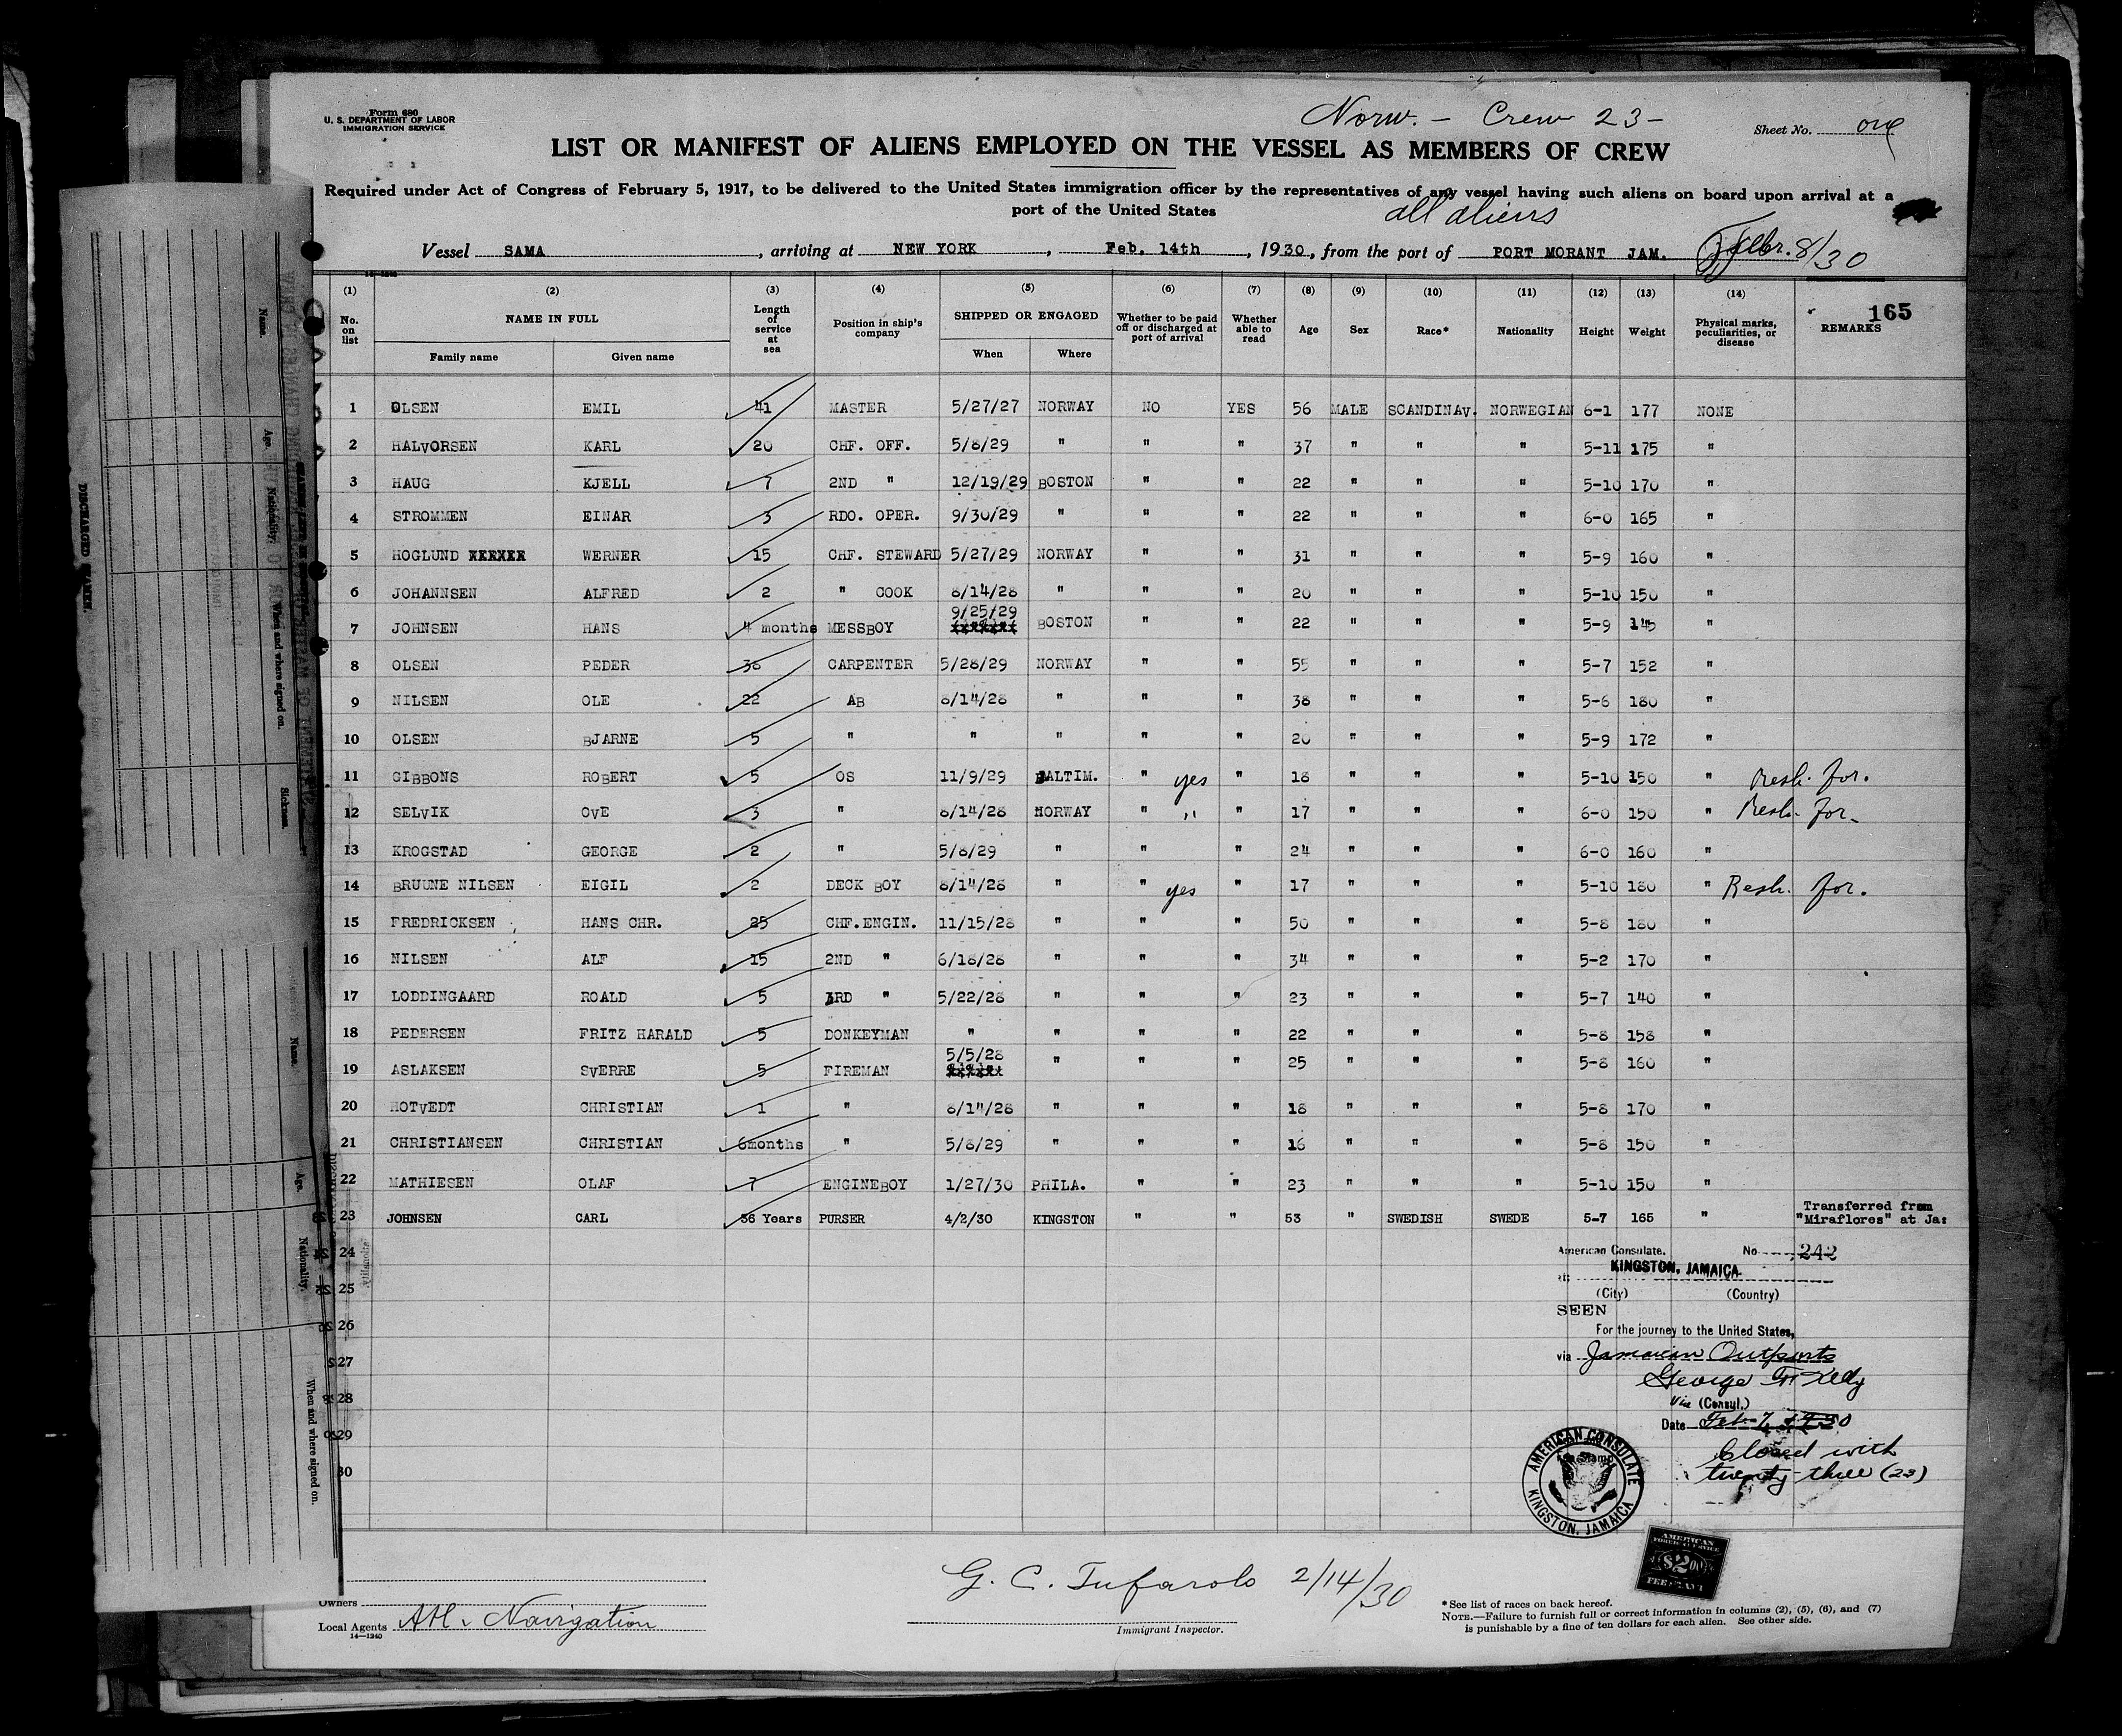 Form 680
U. S. DEPARTMENT OF LABOR
IMMIGRATION SERVICE
Norw. - Crew 23 -
Sheet No. one
LIST OR MANIFEST OF ALIENS EMPLOYED ON THE VESSEL AS MEMBERS OF CREW
Required under Act of Congress of February 5, 1917, to be delivered to the United States immigration officer by the representatives of any vessel having such aliens on board upon arrival at a
port of the United States
all aliens
Vessel SAMA, arriving at NEW YORK, Feb. 14th, 1930, from the port of PORT MORANT JAM. Febr. 8/30
14-1240
(1) (2) (3) (4) (5) (6) (7) (8) (9) (10) (11) (12) (13) (14)
165
No. on list NAME IN FULL Family name Given name Length of service at sea Position in ship's company SHIPPED OR ENGAGED When Where Whether to be paid off or discharged at port of arrival Whether able to read Age Sex Race* Nationality Height Weight Physical marks, peculiarities, or disease REMARKS
1 OLSEN EMIL 41 MASTER 5/27/27 NORWAY NO YES 56 MALE SCANDINAV. NORWEGIAN 6-1 177 NONE
2 HALVORSEN KARL 20 CHF. OFF. 5/8/29 " " " 37 " " " 5-11 175 "
3 HAUG KJELL 7 2ND " 12/19/29 BOSTON " " 22 " " " 5-10 170 "
4 STROMMEN EINAR 3 RDO. OPER. 9/30/29 " " " 22 " " " 6-0 165 "
5 HOGLUND XXXXXX WERNER 15 CHF. STEWARD 5/27/29 NORWAY " " 31 " " " 5-9 160 "
6 JOHANNSEN ALFRED 2 " COOK 8/14/28 " " " 20 " " " 5-10 150 "
7 JOHNSEN HANS 4 months MESSBOY 9/25/29 BOSTON " " 22 " " " 5-9 145 "
8 OLSEN PEDER 38 CARPENTER 5/28/29 NORWAY " " 55 " " " 5-7 152 "
9 NILSEN OLE 22 AB 8/14/28 " " " 38 " " " 5-6 180 "
10 OLSEN BJARNE 5 " " " " " 20 " " " 5-9 172 "
11 GIBBONS ROBERT 5 OS 11/9/29 BALTIM. " yes " 18 " " " 5-10 150 " Resh. for.
12 SELVIK OVE 3 " 8/14/28 NORWAY " " " 17 " " " 6-0 150 " Resh. for.
13 KROGSTAD GEORGE 2 " 5/8/29 " " " 24 " " " 6-0 160 "
14 BRUUNE NILSEN EIGIL 2 DECK BOY 8/14/28 " " yes " 17 " " " 5-10 180 " Resh. for.
15 FREDRICKSEN HANS CHR. 25 CHF.ENGIN. 11/15/28 " " " 50 " " " 5-8 180 "
16 NILSEN ALF 15 2ND " 6/18/28 " " " 34 " " " 5-2 170 "
17 LODDINGAARD ROALD 5 3RD " 5/22/28 " " " 23 " " " 5-7 140 "
18 PEDERSEN FRITZ HARALD 5 DONKEYMAN " " " " 22 " " " 5-8 158 "
19 ASLAKSEN SVERRE 5 FIREMAN 5/5/28 " " " 25 " " " 5-8 160 "
20 HOTVEDT CHRISTIAN 1 " 8/14/28 " " " 18 " " " 5-8 170 "
21 CHRISTIANSEN CHRISTIAN 6months " 5/8/29 " " " 16 " " " 5-8 150 "
22 MATHIESEN OLAF 7 ENGINEBOY 1/27/30 PHILA. " " 23 " " " 5-10 150 "
23 JOHNSEN CARL 36 Years PURSER 4/2/30 KINGSTON " " 53 " SWEDISH SWEDE 5-7 165 " Transferred from "Miraflores" at Ja:
24
25
26
27
28
29
30
American Consulate. No 242
at KINGSTON, JAMAICA.
(City) (Country)
SEEN
For the journey to the United States,
via Jamaican Outports
George
Vice (Consul.)
Date Feb 7, 1930
Closed with
twenty-three (23)
AMERICAN CONSULATE
KINGSTON, JAMAICA
AMERICAN
FOREIGN SERVICE
$2.00
FEE STAMP
G. C. Tufarolo 2/14/30
Immigrant Inspector.
Owners
Local Agents Atl. Navigation
14-1240
* See list of races on back hereof.
NOTE.—Failure to furnish full or correct information in columns (2), (5), (6), and (7)
is punishable by a fine of ten dollars for each alien. See other side.
Name.
Age.
Nationality.
When and where signed on.
Sickness.
DISCHARGED SEAMEN.
Name.
Age.
Nationality.
When and where signed on.